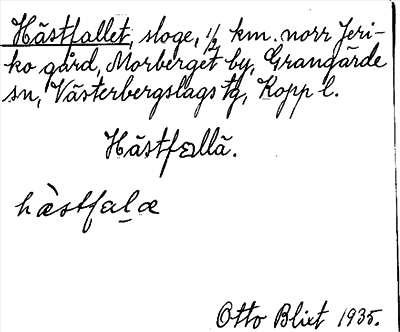 Hästfallet, sloge, 1/2 km. norr Jeri-
ko gård, Morberget by, Grangärde
sn, Västerbergslags tg, Kopp l.
Hästfallä.
hæ̀stfaḷæ
Otto Blixt 1935.